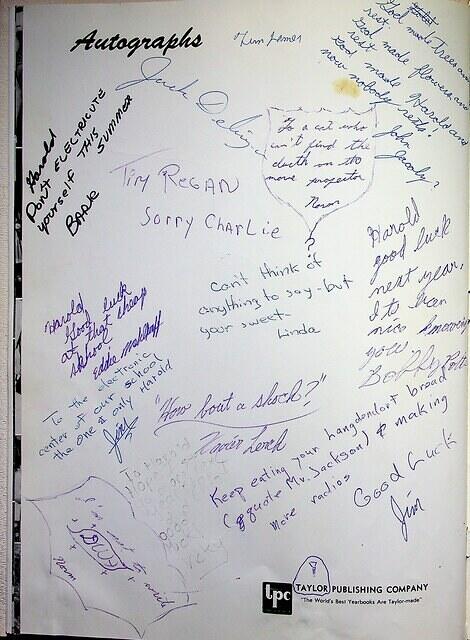 Autographs
Tim James
God made Trees and
rest
God made flowers and
rest.
God made Harold and
now nobody rests!
John
Jack
Harold
Don't ELECTRICUTE
yourself THIS SUMMER
BARNE
To a cat who
can't find the
on the
movie projector
Norm
Tim Regan
Sorry CHarLie
?
Harold
good luck
next year,
I to been
nice knowing
you
Bobby
Can't think of
anything to say-but
your sweet-
Linda
Harold
Good luck
at that cheap
skhool
Eddie
To the electronic
center of our school
the one & only Harold
Jim
"How bout a shock?"
Xavier Lerch
Keep eating your Langdendorf bread
(quote Mr. Jackson) & making
more radios
Good Luck
Jim
To Harold
Ricky
I'm next to
DWF
Norm
lpc
TAYLOR PUBLISHING COMPANY
"The World's Best Yearbooks Are Taylor-made"